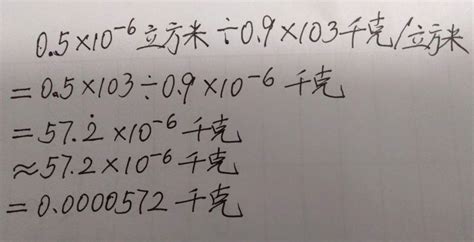 0.5×10⁻⁶立方米÷0.9×103千克/立方米
=0.5×103÷0.9×10⁻⁶千克
=57.2̇×10⁻⁶千克
≈57.2×10⁻⁶千克
=0.0000572千克